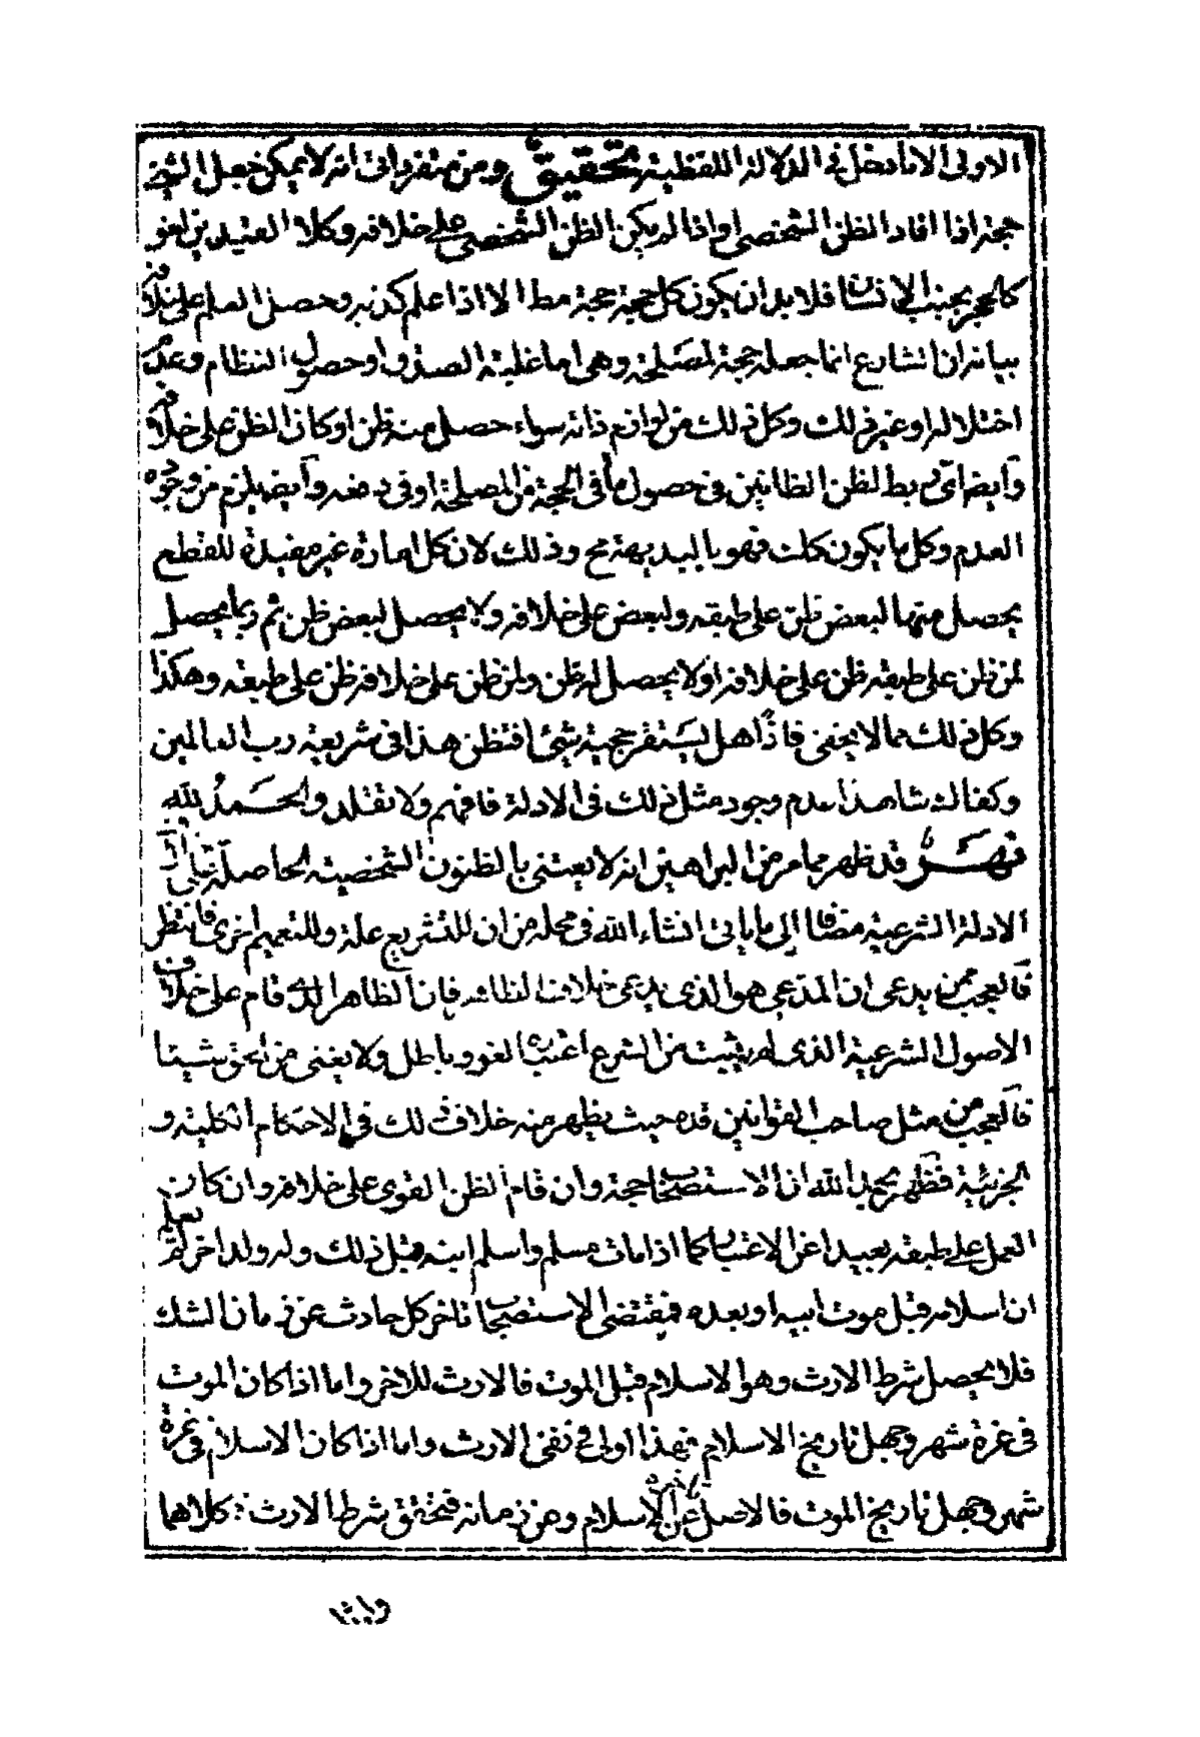 الاولى الا ما دخل فى الدلالة اللفظية تحقيق ومن متفرداتى انه لا يمكن جعل الشئ
حجة اذا افاد الظن الشخصى او اذا لم يكن الظن الشخصى على خلافه وكلا القيدين لغو
كالحجر بجنب الانسان فلا بد ان يكون كل حجة حجة مط الا اذا علم كذبه وحصل العلم على خلافه
بيانه ان الشارع انما جعله حجة لمصلحة وهى اما غلبة الصدق او حصول النظام وعدم
اختلاله او غير ذلك وكل ذلك من لوازم ذاته سواء حصل منه ظن او كان الظن على خلافه
وايضا اى ربط لظن الظانين فى حصول ما فى الحجة من المصلحة او فى دفعه وايضا يلزم من وجوده
العدم وكل ما يكون كلت فهو بالبديهة مح وذلك لان كل امارة غير مفيدة للقطع
يحصل منها لبعض ظن على طبقه ولبعض على خلافه ولا يحصل لبعض ظن ثم ربما يحصل
لمن ظن على طبقه ظن على خلافه او لا يحصل له ظن ولمن ظن على خلافه ظن على طبقه وهكذا
وكل ذلك مما لا يخفى فاذا هل يستقر حجية شئ افتظن هذا فى شريعة رب العالمين
وكفالك شاهدا عدم وجود مثل ذلك فى الادلة فافهم ولا تقلد والحمد لله
قد ظهر مما مر من البراهين انه لا يعتنى بالظنون الشخصية الحاصلة
الادلة الشرعية مضافا الى ما يأتى انشاء الله فى محله من ان للتشريع علة وللتعميم اخرى فانتظر
فالعجب ممن يدعى ان المدعى هو الذى يدعى خلاف الظاهر فان الظاهر الذى قام على خلاف
الاصول الشرعية الذى لم يثبت من الشرع اعتباره لغو وباطل ولا يغنى من الحق شيئا
فالعجب من مثل صاحب القوانين قده حيث يظهر منه خلاف ذلك فى الاحكام الكلية و
الجزئية فظهر بحمد الله ان الاستصحاب حجة وان قام الظن القوى على خلافه وان كان
العمل على طبقه بعيدا عن الاعتبار كما اذا مات مسلم واسلم ابنه قبل ذلك وله ولد اخر لم يعلم
ان اسلامه قبل موت ابيه او بعده فمقتضى الاستصحاب تاخر كل حادث عن زمان الشك
فلا يحصل شرط الارث وهو الاسلام قبل الموت فالارث للاخر واما اذا كان الموت
فى غرة شهر وجهل تاريخ الاسلام فهذا اولى فى نفى الارث واما اذا كان الاسلام فى غرة
شهر وجهل تاريخ الموت فالاصل تاخره عن الاسلام وعن زمانه فتحقق شرط الارث كلاهما